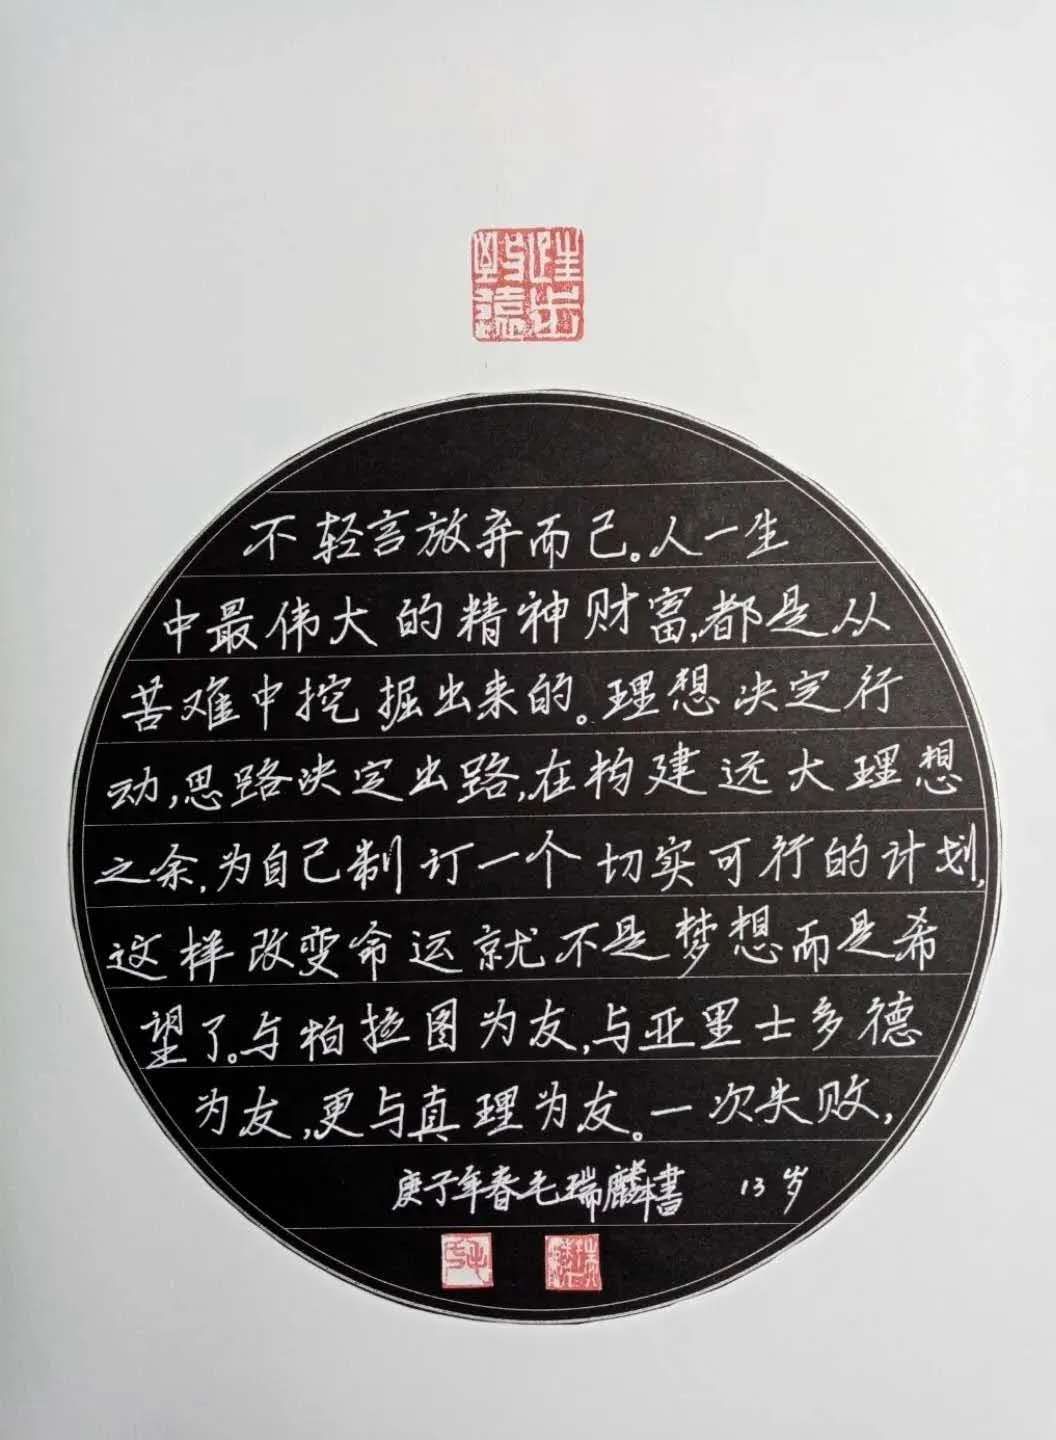 跬步致远
不轻言放弃而已。人一生
中最伟大的精神财富,都是从
苦难中挖掘出来的。理想决定行
动,思路决定出路,在构建远大理想
之余,为自己制订一个切实可行的计划,
这样改变命运就不是梦想而是希
望了。与柏拉图为友,与亚里士多德
为友,更与真理为友。一次失败,
庚子年春毛瑞麟書 13岁